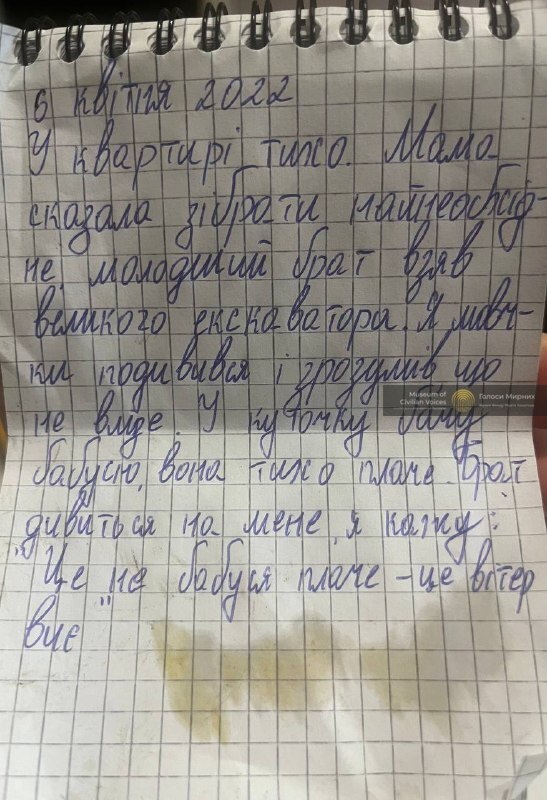 6 квітня 2022
У квартирі тихо. Мама
сказала зібрати найнеобхід-
не, молодший брат взяв
великого екскаватора. Я мовч-
ки подивився і зрозумів що
Museum of
Civilian Voices
Голоси Мирних
не вийде. У куточку бачу
бабусю, вона тихо плаче. Брат
дивиться на мене, я кажу:
"Це не бабуся плаче – це вітер
виє"